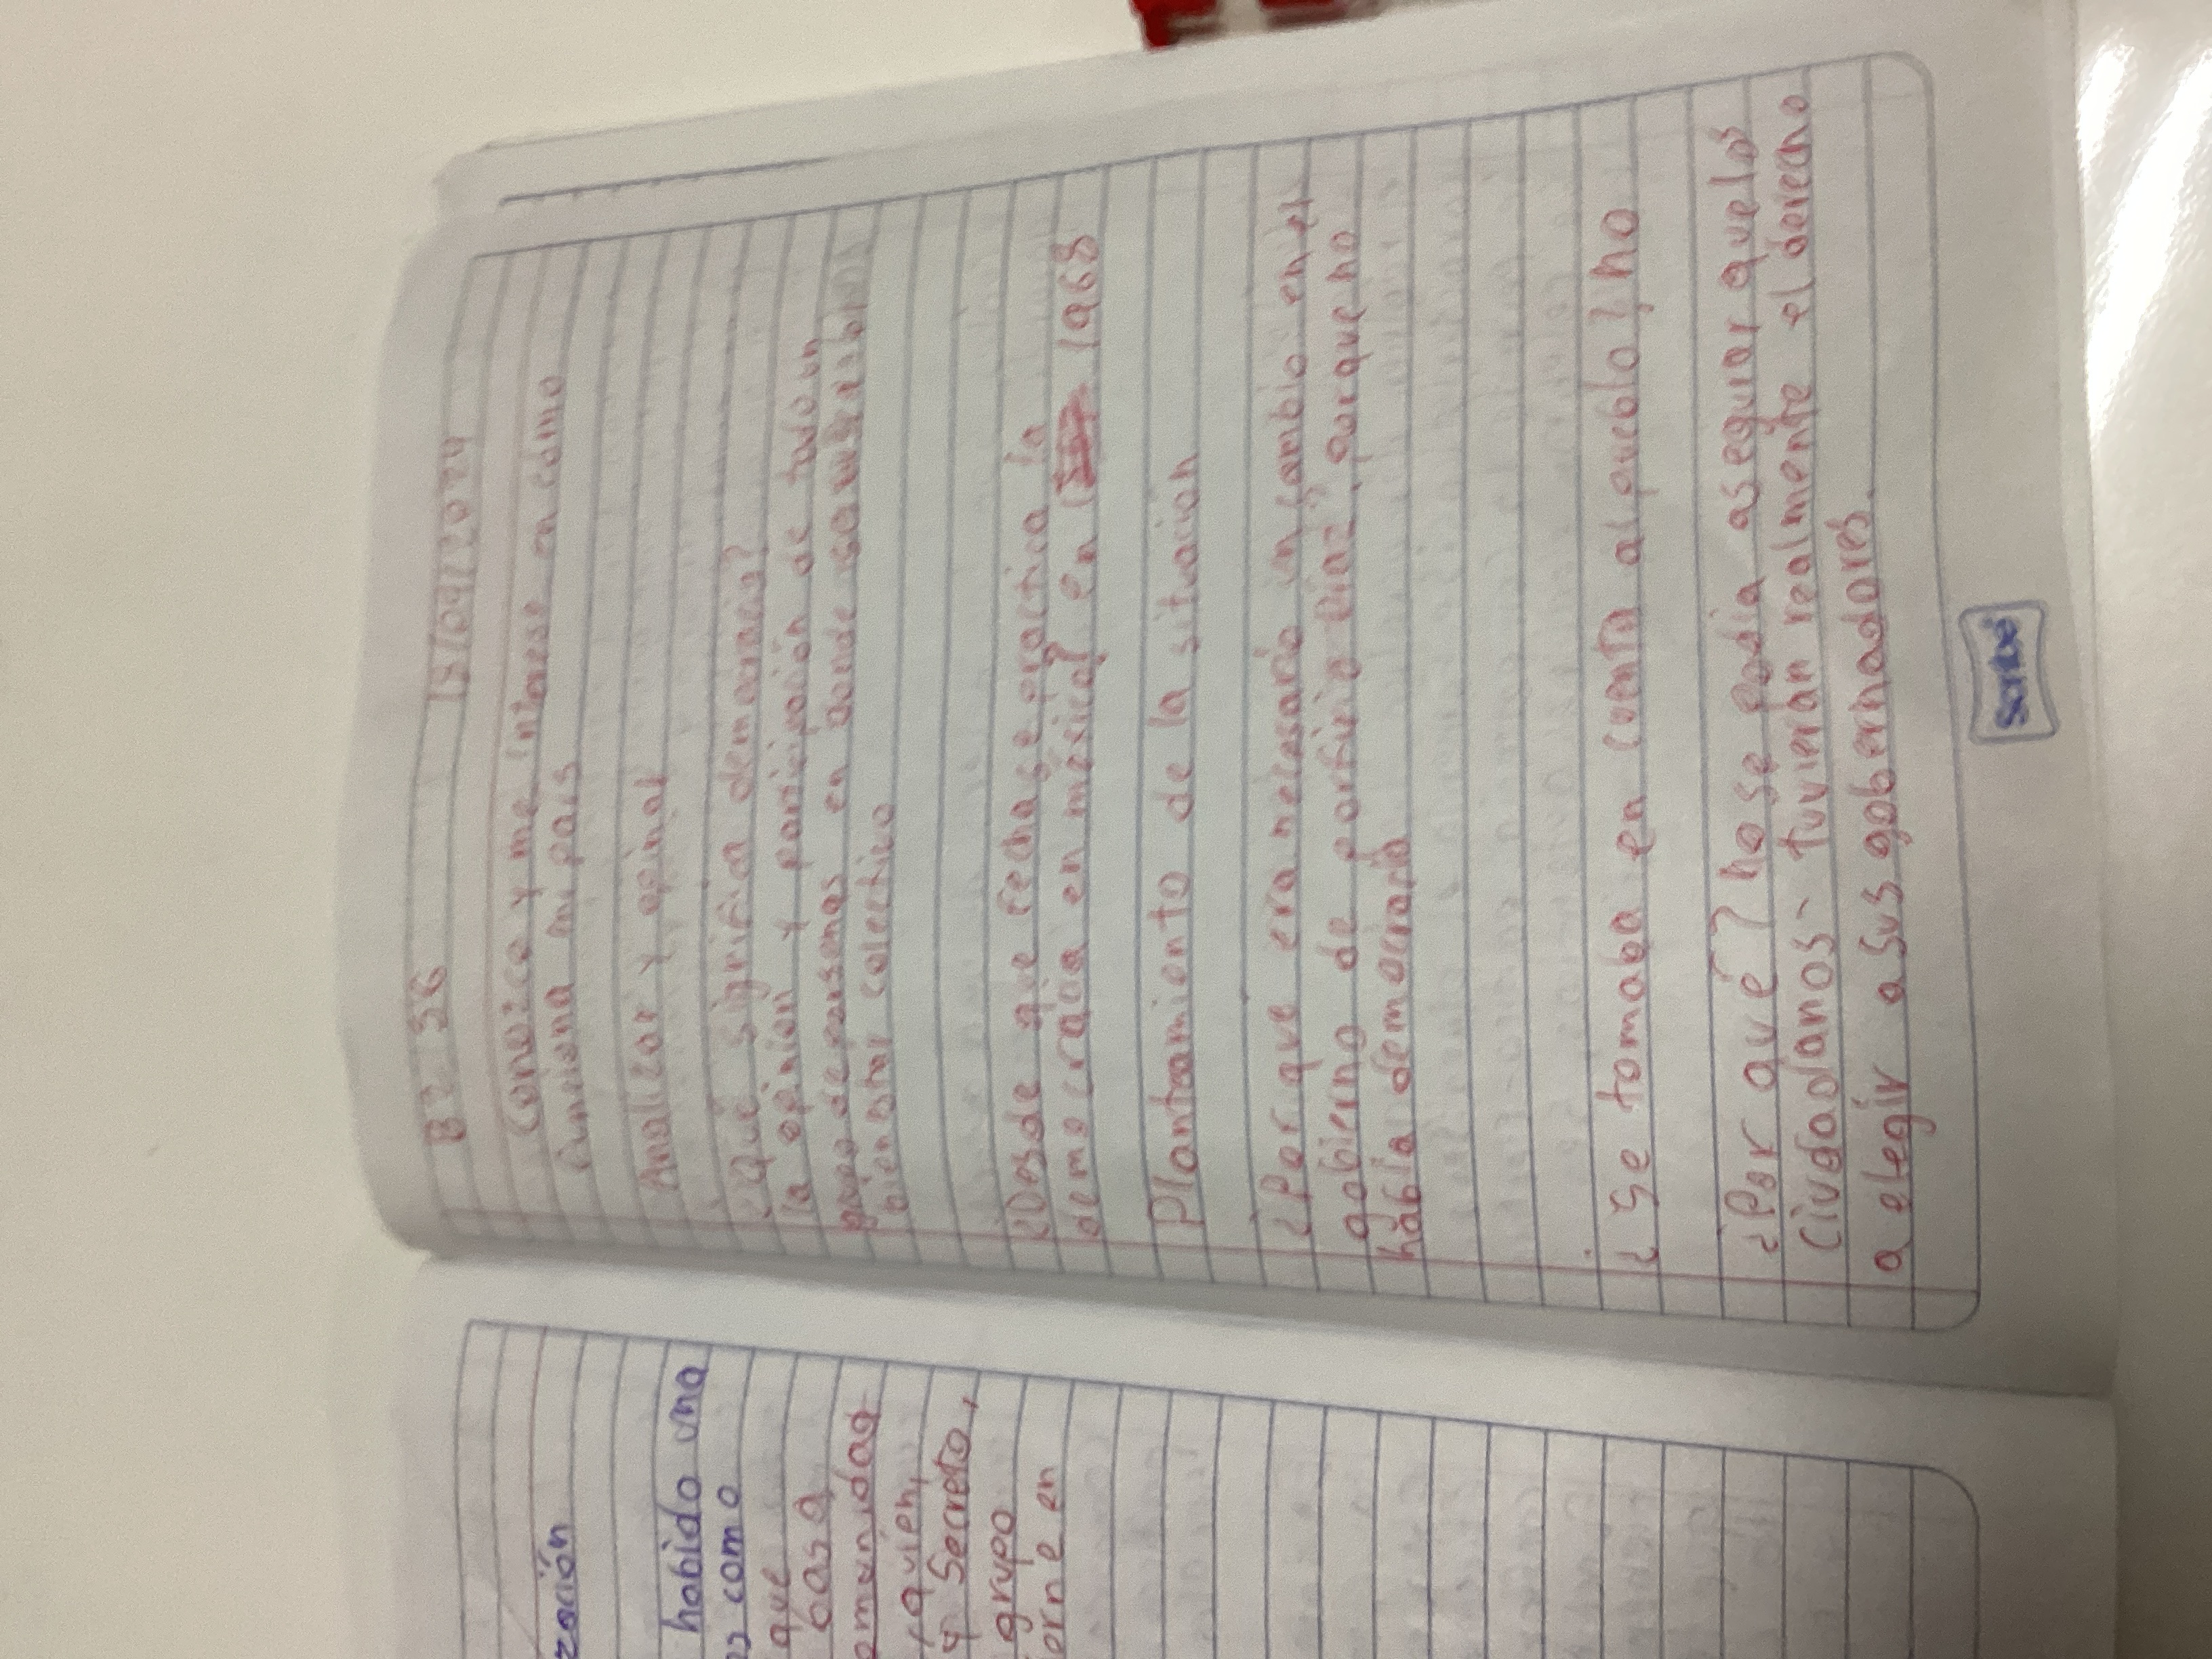 zación
habido una
as como
que
basa
omunidad
quien,
y Secreto,
grupo
erne en
B2 S6 19/04/2024
Conozco y me intereso en como
funciona mi pais
Analizar y opinar
¿Qué significa democracia?
la opinion y participación de todo un
grupo de personas en donde
bienestar colectivo
¿Desde que fecha se practica la
democracia en mexico? en 1968
Plantamiento de la situación
¿Por que era necesario un cambio en el
gobierno de porfirio Diaz. porque no
habia democracia
¿Se tomaba en cuenta al pueblo? no
¿Por qué? no se podia asegurar que los
Ciudadanos- tuvieran realmente el derecho
a elegir a sus gobernadores.
Scribe